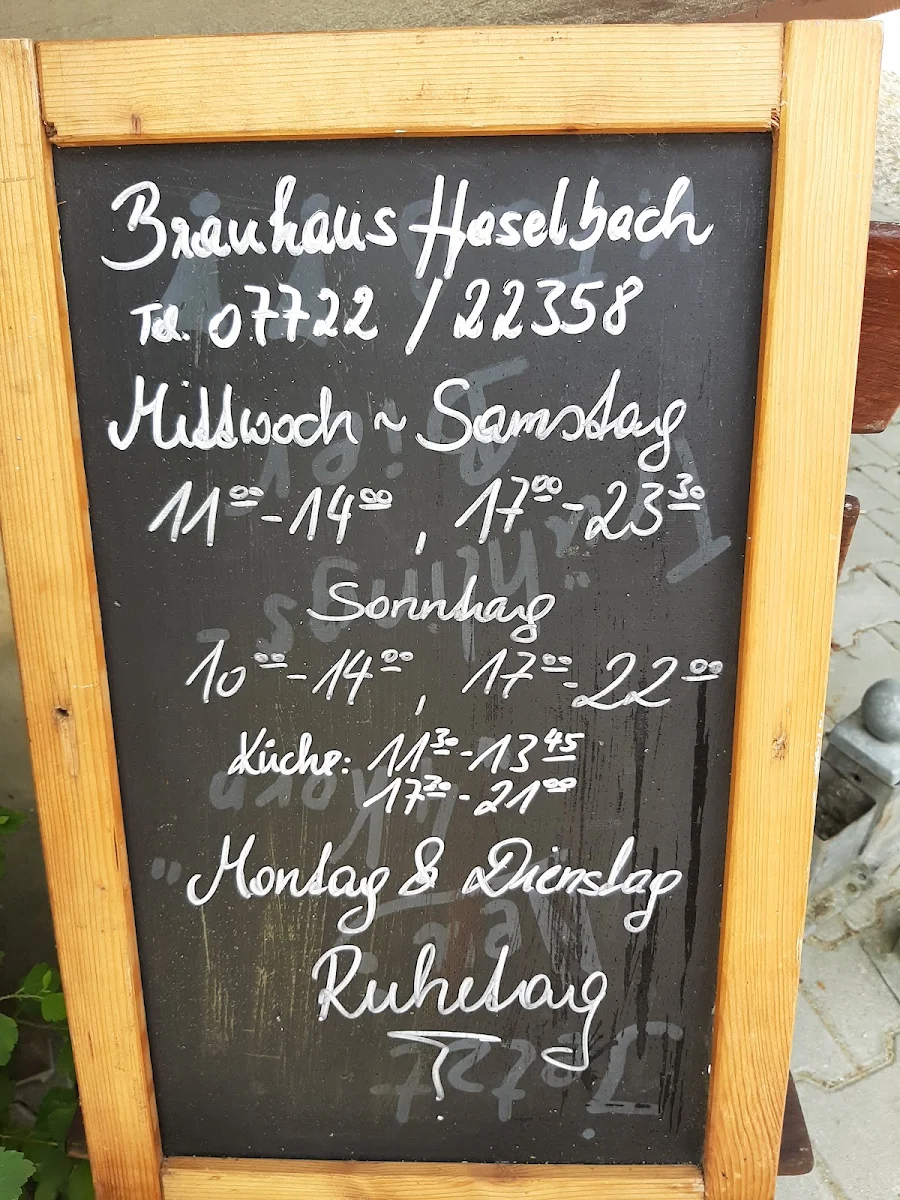 Brauhaus Haselbach
Tel. 07722 / 22358
Mittwoch ~ Samstag
11⁰⁰-14⁰⁰, 17⁰⁰-23³⁰
Sonntag
10⁰⁰-14⁰⁰, 17⁰⁰-22⁰⁰
Küche: 11³⁰-13⁴⁵
17³⁰-21⁰⁰
Montag & Dienstag
Ruhetag